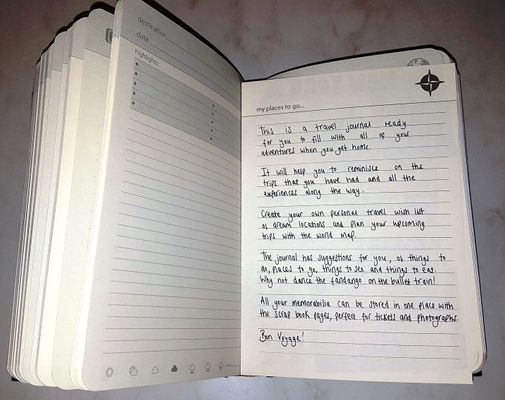 destination
date
highlights:
my places to go...
This is a travel journal ready
for you to fill with all of your
adventures when you get home.
It will help you to reminisce on the
trips that you have had and all the
experiences along the way.
Create your own personal travel wish list
of dream locations and plan your upcoming
trips with the world map.
The journal has suggestions for you, of things to
do, places to go, things to see and things to eat.
Why not dance the fandango on the bullet train!
All your memorabilia can be stored in one place with
the scrap book pages, perfect for tickets and photographs.
Bon Voyage!